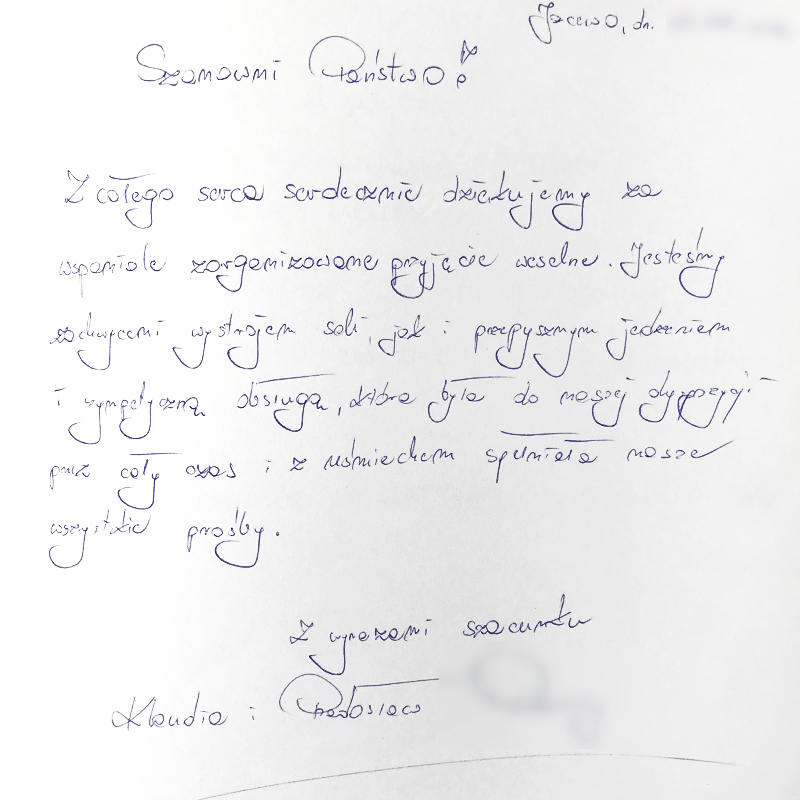 Jacewo, dn.
Szanowni Państwo!
Z całego serca serdecznie dziękujemy za
wspaniale zorganizowane przyjęcie weselne. Jesteśmy
zachwyceni wystrojem sali, jak i przepysznym jedzeniem
i sympatyczną obsługą, która była do naszej dyspozycji
przez cały czas i z uśmiechem spełniała nasze
wszystkie prośby.
Z wyrazami szacunku
Klaudia i Radosław